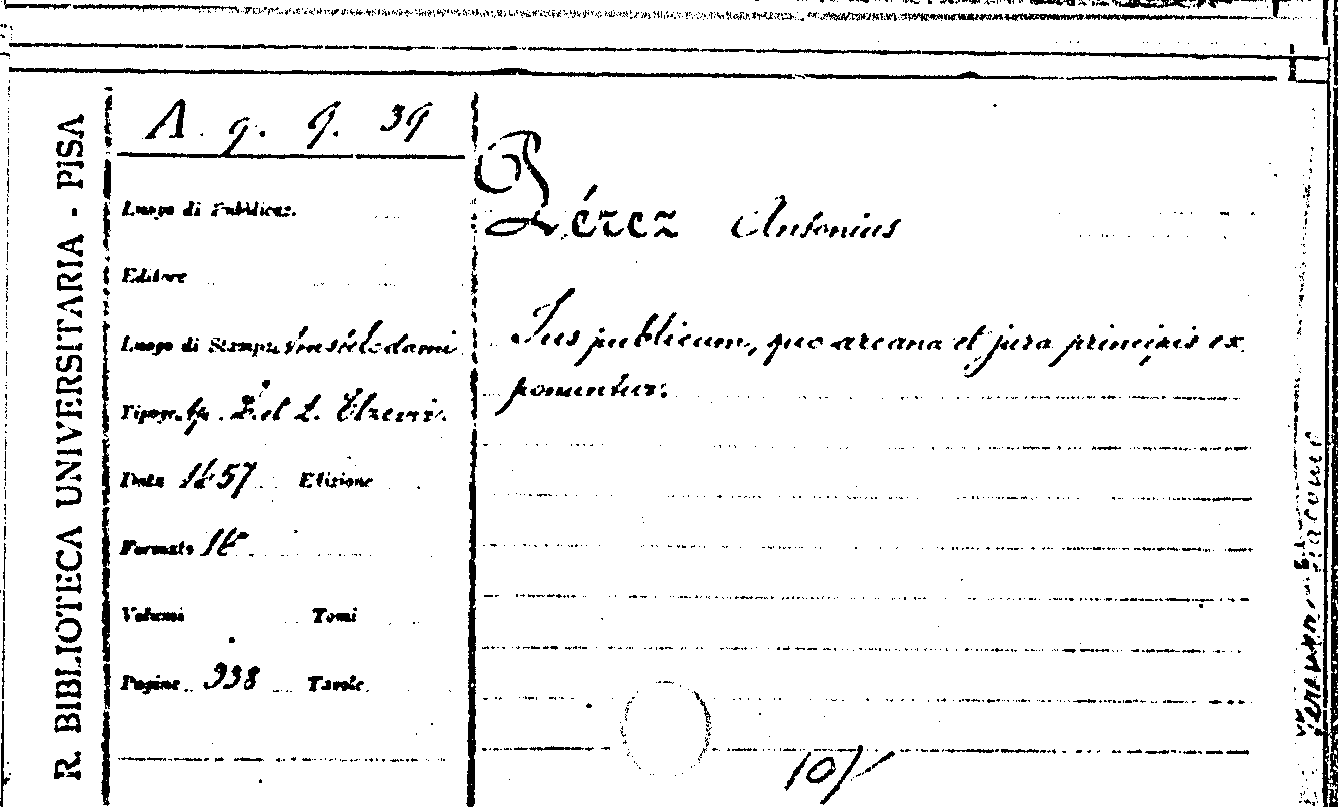 R. BIBLIOTECA UNIVERSITARIA - PISA
A. g. 9. 39
Luogo di Pubblicaz.
Editore
Luogo di Stampa Amstelodami
Tipogr. L. et D. Elzevir.
Data 1657 Edizione
Formato 16°
Volumi Tomi
Pagine 338 Tavole
Pérez Antonius
Jus publicum, quo arcana et jura principis ex
ponuntur.